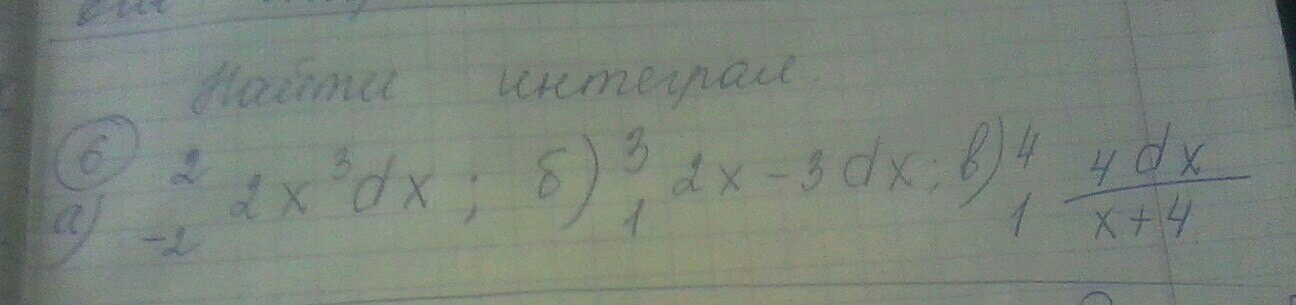 Найти интеграл
6
а) 2 -2 2x³dx; б) 3 1 2x-3dx; в) 4 1 4dx/x+4